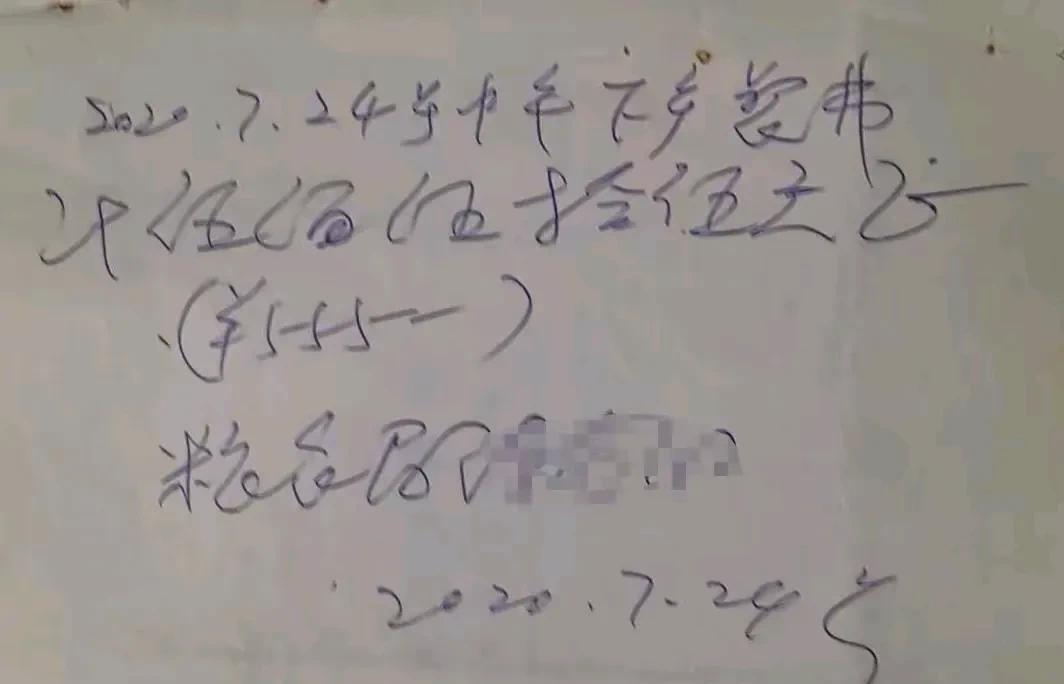 2020.7.24号中午下乡餐费
计伍佰伍拾伍元正
(¥555—)
粮食
2020.7.24号